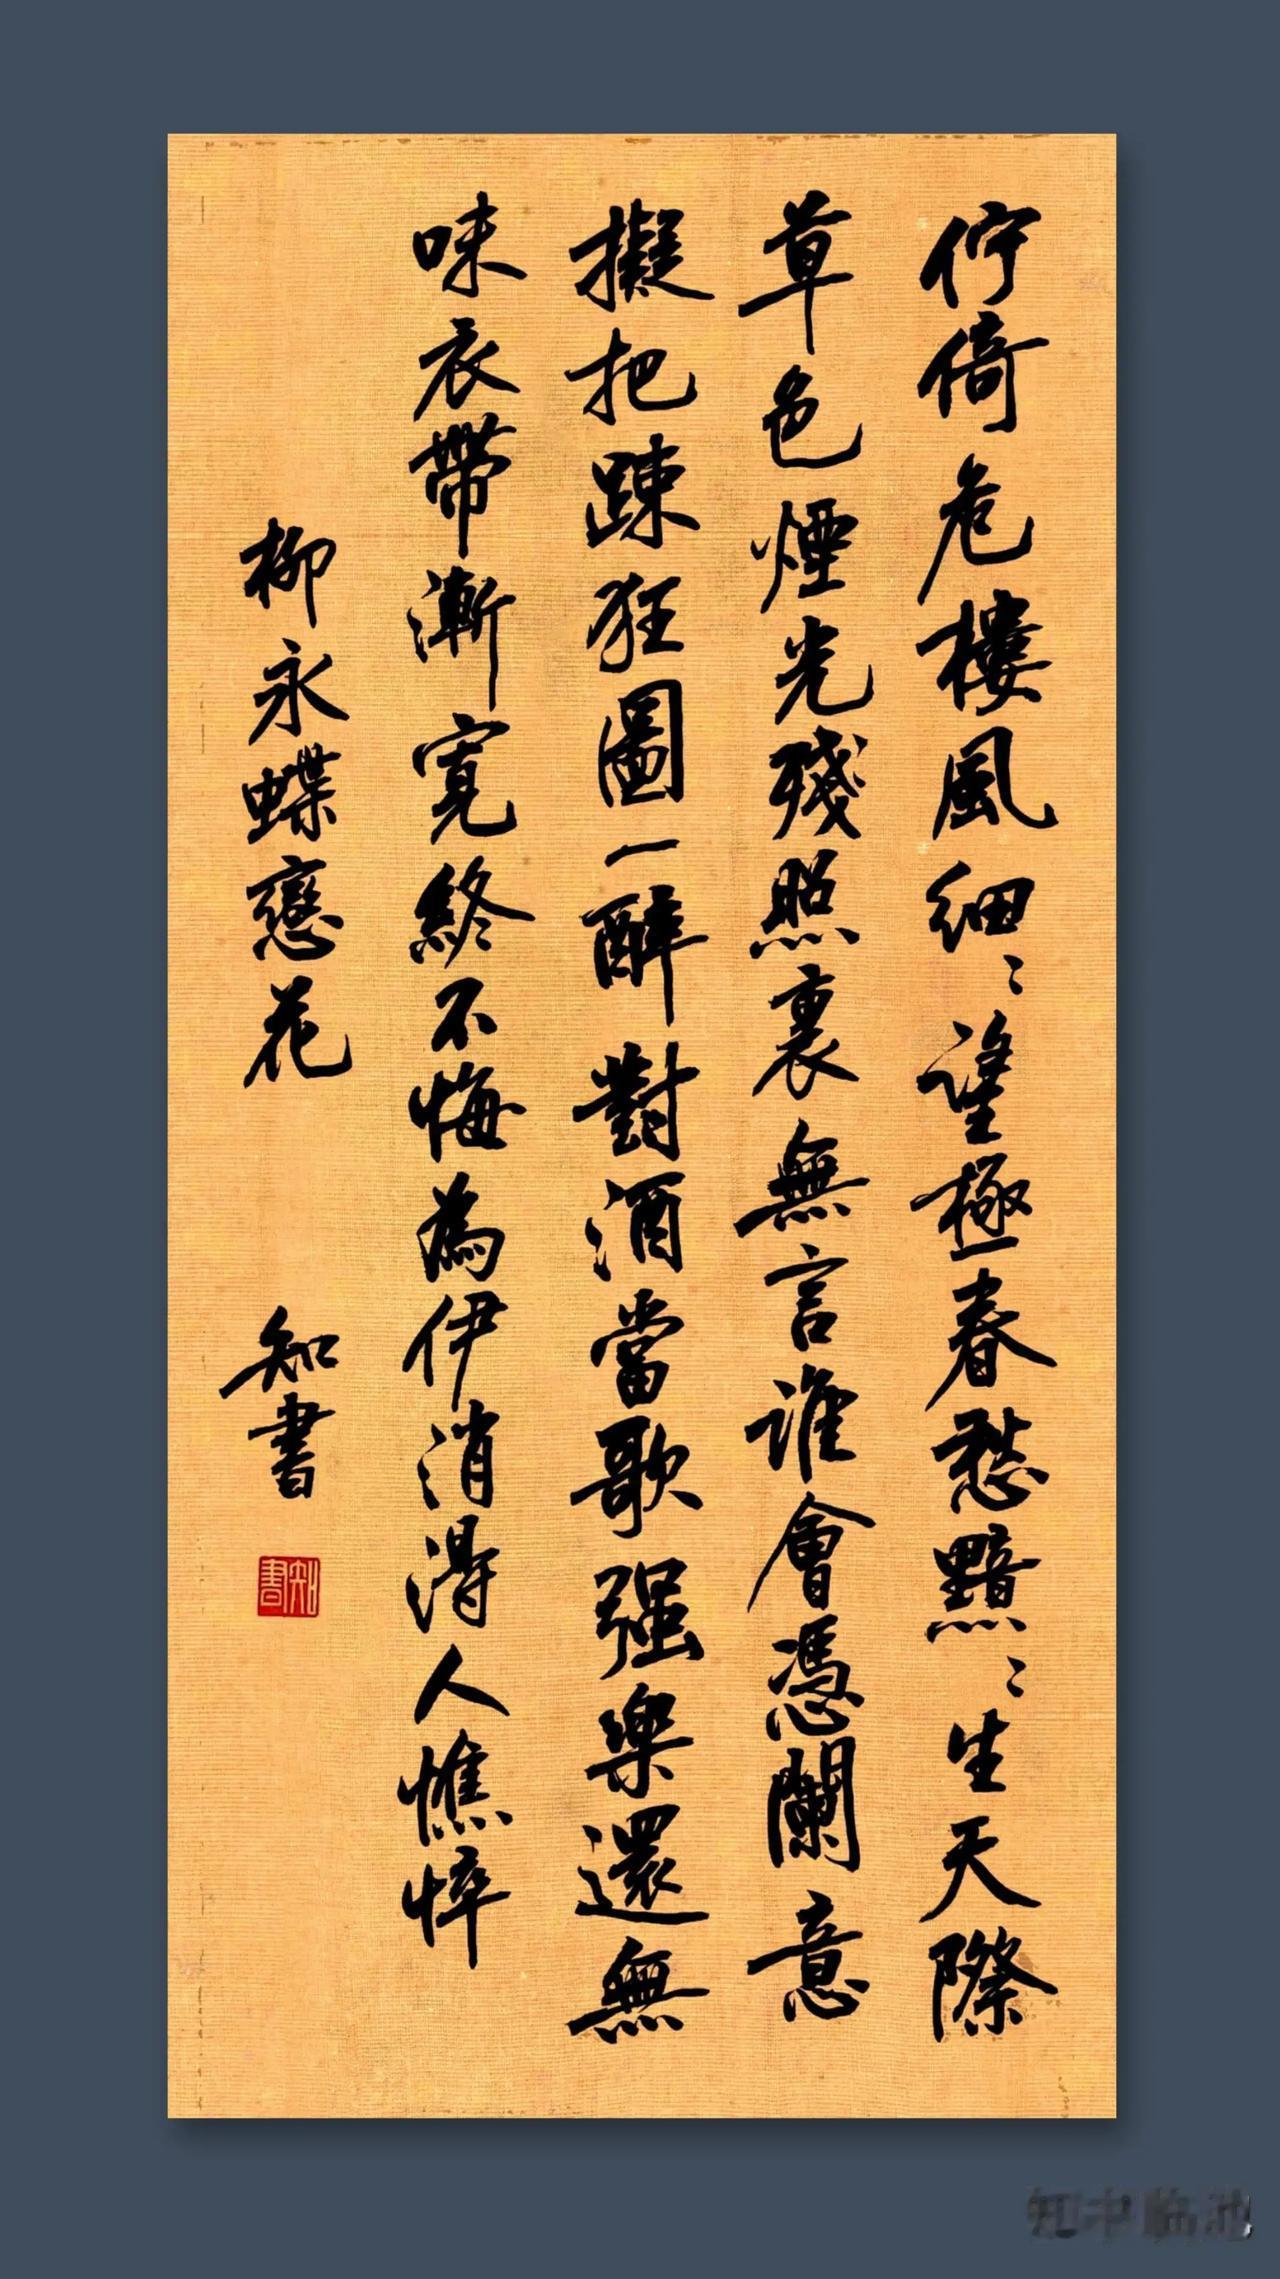 佇倚危樓風細〻望極春愁黯〻生天際
草色煙光殘照裏無言誰會憑闌意
擬把踈狂圖一醉對酒當歌强樂還無
味衣帶漸寬終不悔為伊消得人憔悴
柳永蝶戀花
知書
知書
知书临池